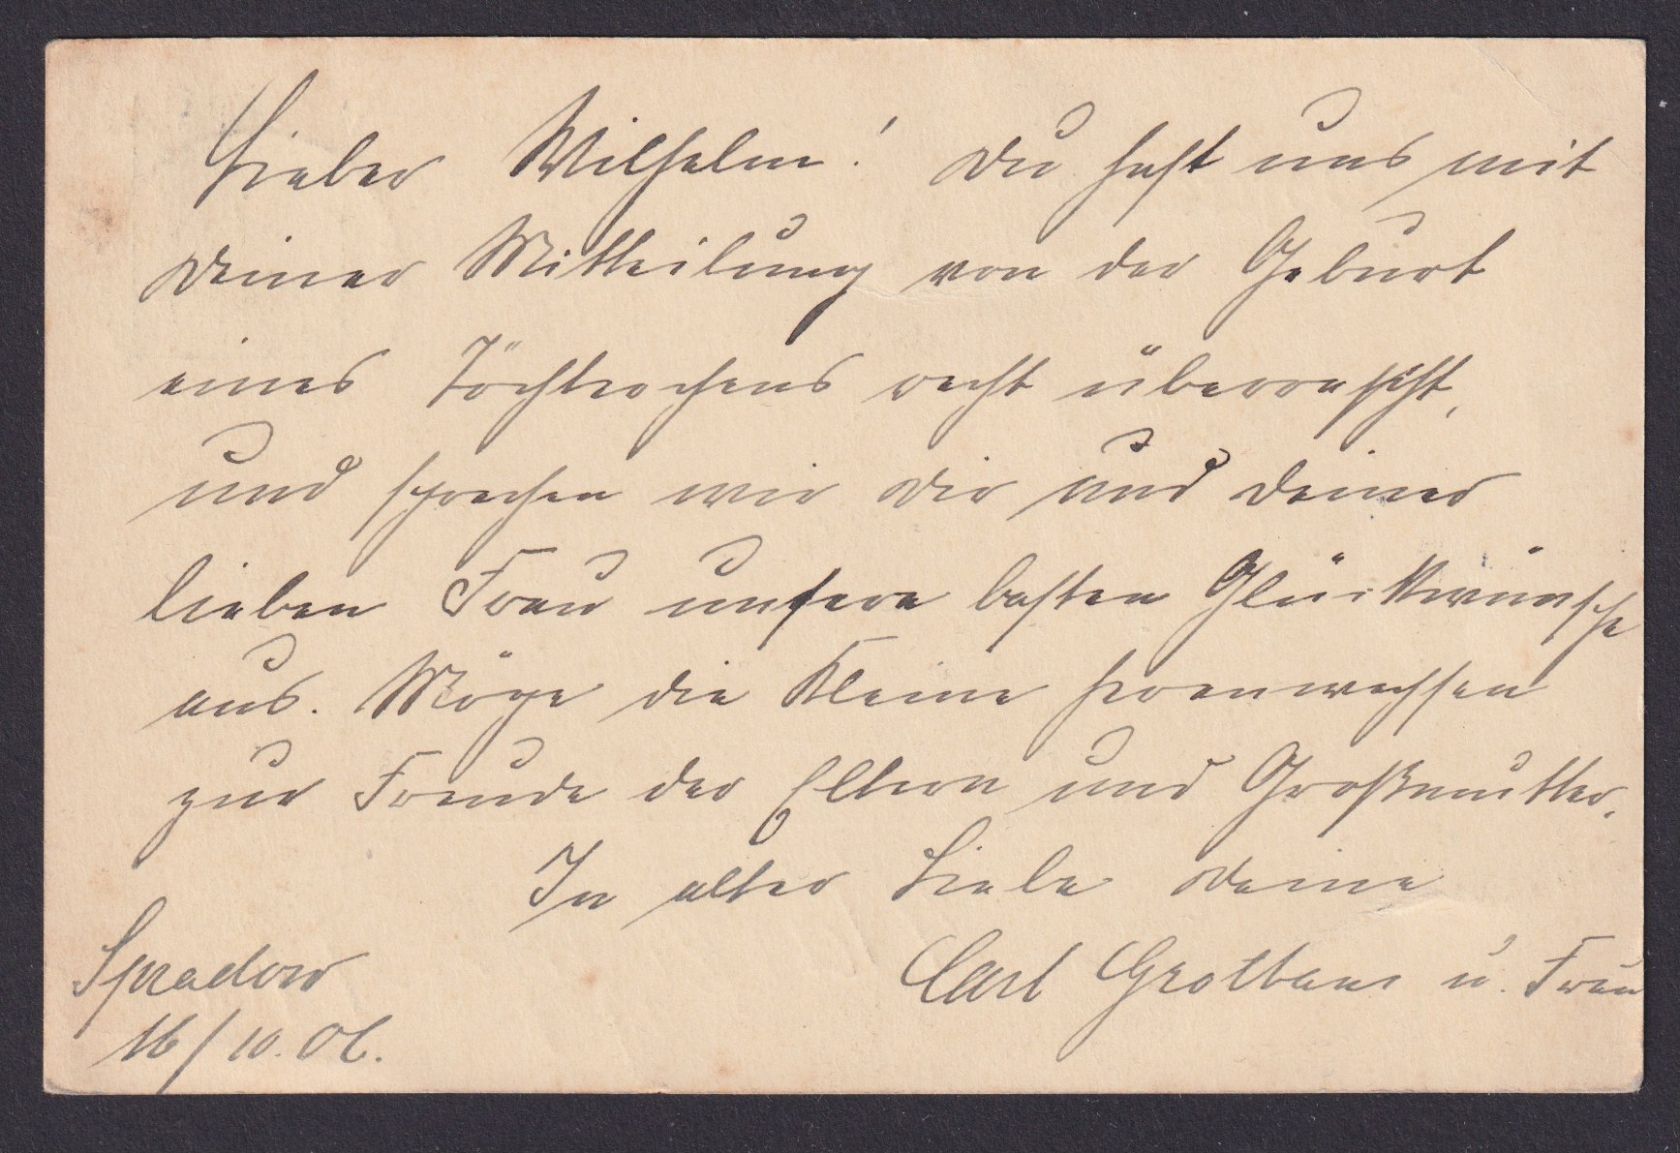 Lieber Wilhelm! Du hast uns mit
Deiner Mittheilung von der Geburt
eines Töchterchens recht überrascht,
und sprechen wir Dir und Deiner
lieben Frau unsere besten Glückwünsche
aus. Möge die Kleine heranwachsen
zur Freude der Eltern und Großmutter.
In alter Liebe Deine
Carl Grothaus u. Frau
Spradow
16/10.06.